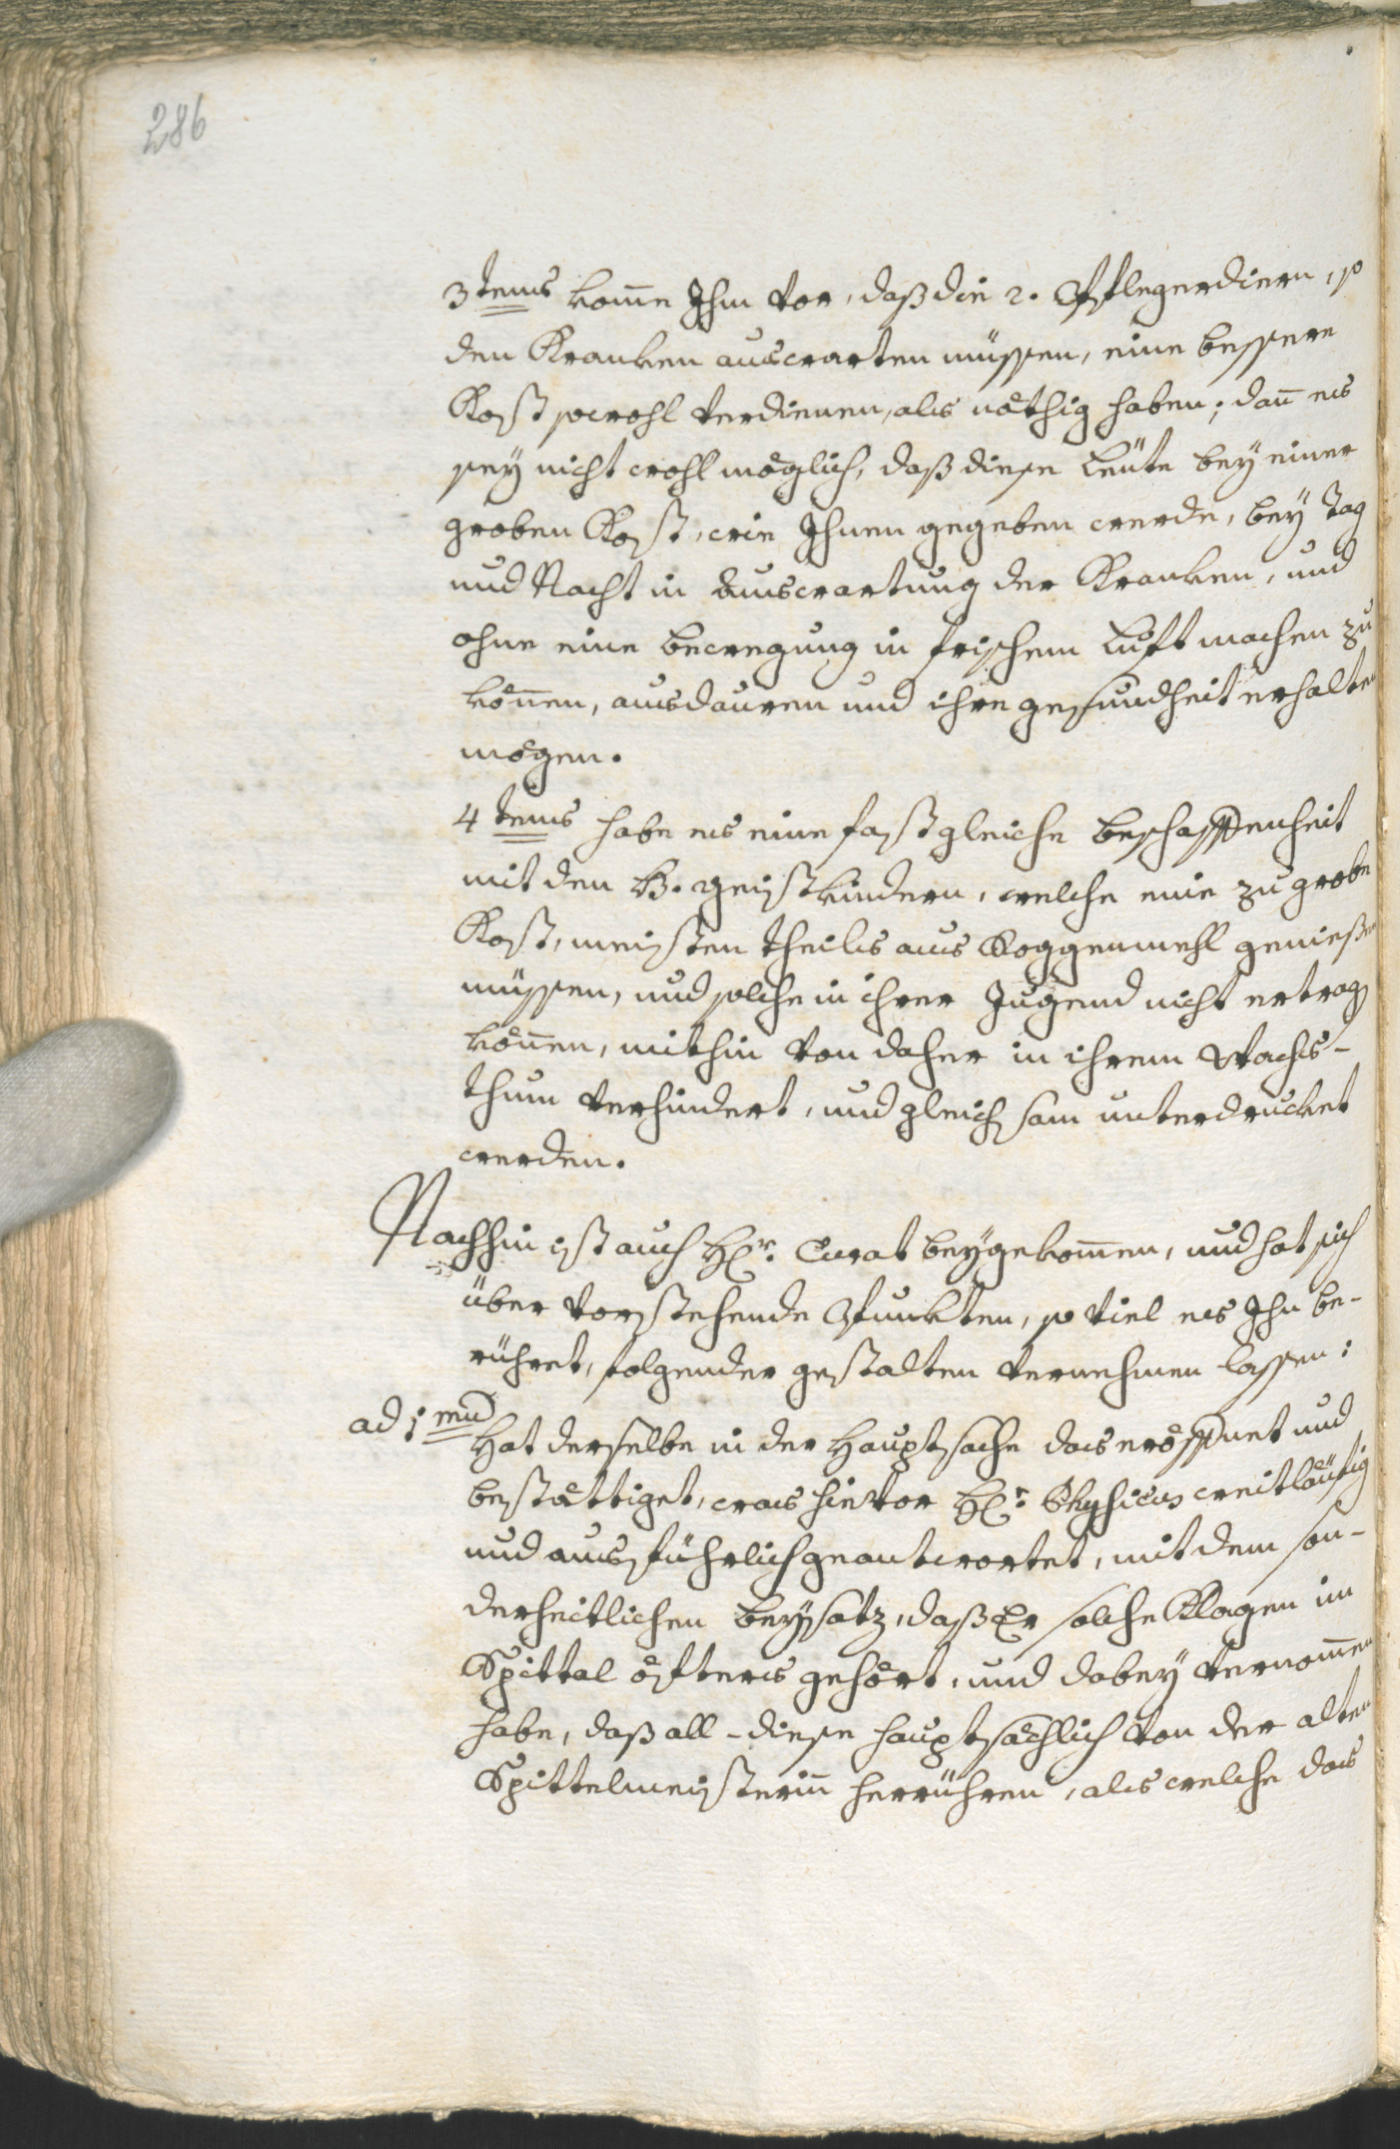 286
3tens kom̄e Ihm vor, daß die 2. Pflegerdiern, so
den Kranken auswarten müssen, eine bessere
Kost sowohl verdienen, als nöthig haben; dan̄ es
sey nicht wohl möglich, daß diese Leüte bey einer
groben Kost, wie Ihnen gegeben werde, bey Tag
und Nacht in Auswartung der Kranken, und
ohne eine bewegung in frischem Luft machen zu
kön̄en, ausdauren und ihre gesundheit erhalten
mögen.
4tens habe es eine fast gleiche beschaffenheit
mit den H. geistkindern, welche eine zu grobe
Kost, meisten theils aus Roggenmehl genießen
müssen, und solche in ihrer Jugend nicht ertrag
kön̄en, mithin von daher in ihrem Wachs-
thum verhindert, und gleichsam unterdrucket
werden.
Nachhin ist auch H͠r. Curat beygekom̄en, und hat sich
über vorstehende Punkten, so viel es Ihn be-
rühret, folgender gestalten vernehmen lassen:
ad 1mũ
Hat derselbe in der Hauptsache das eröffnet und
bestättiget, was hievor H͠r. Physicus weitläufig
und ausführlich geantwortet, mit dem son-
derheitlichen beysatz, daß Er solche Klagen im
Spittal öfters gehört, und dabey vernom̄en
habe, daß all-diese hauptsächlich von der alten
Spittelmeisterin̄ herrühren, als welche das